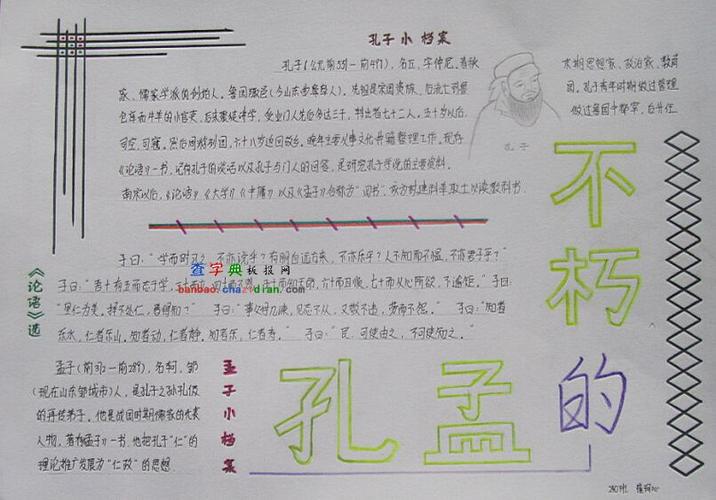 孔子小档案
孔子(公元前551—前479),名丘,字仲尼。春秋末期思想家、政治家、教育
家、儒家学派的创始人。鲁国陬邑(今山东曲阜
包等而牛羊的小官吏,后来聚徒讲学,受业门人先后多达三千,
司空、司寇。然后周游列国,六十八岁返回故乡。晚年主要从事文化典籍整理工作。现存
《论语》一书,记有孔子的谈话以及孔子与门人的问答,是研究孔子学说的主要资料。
南宋以后,《论语》《大学》《中庸》以及《孟子》合称为“四书”,成为封建科举取士必读教科书。
孔子
不朽的
孔孟
《论语》选
子曰:“学而时习之,不亦说乎?有朋自远方来,不亦乐乎?人不知而不愠,不亦君子乎?”
子曰:“吾十有五而志于学,
五十而知天命,六十而耳顺,七十而从心所欲,不逾矩。”子曰:
“里仁为美,择不处仁,焉得知?”子曰:“事父母几谏,见志不从,又敬不违,劳而不怨。”子曰:“知者
乐水,仁者乐山。知者动,仁者静。知者乐,仁者寿。”子曰:“民可使由之,不可使知之。”
查字典板报网
banbao.chazidian.com
孟子小档案
孟子(前372—前289),名轲,邹
(现在山东邹城市)人,是孔子之孙孔伋
的再传弟子。他是战国时期儒家的代表
人物,著有《孟子》一书。他把孔子“仁”的
理论推广发展为“仁政”的思想。